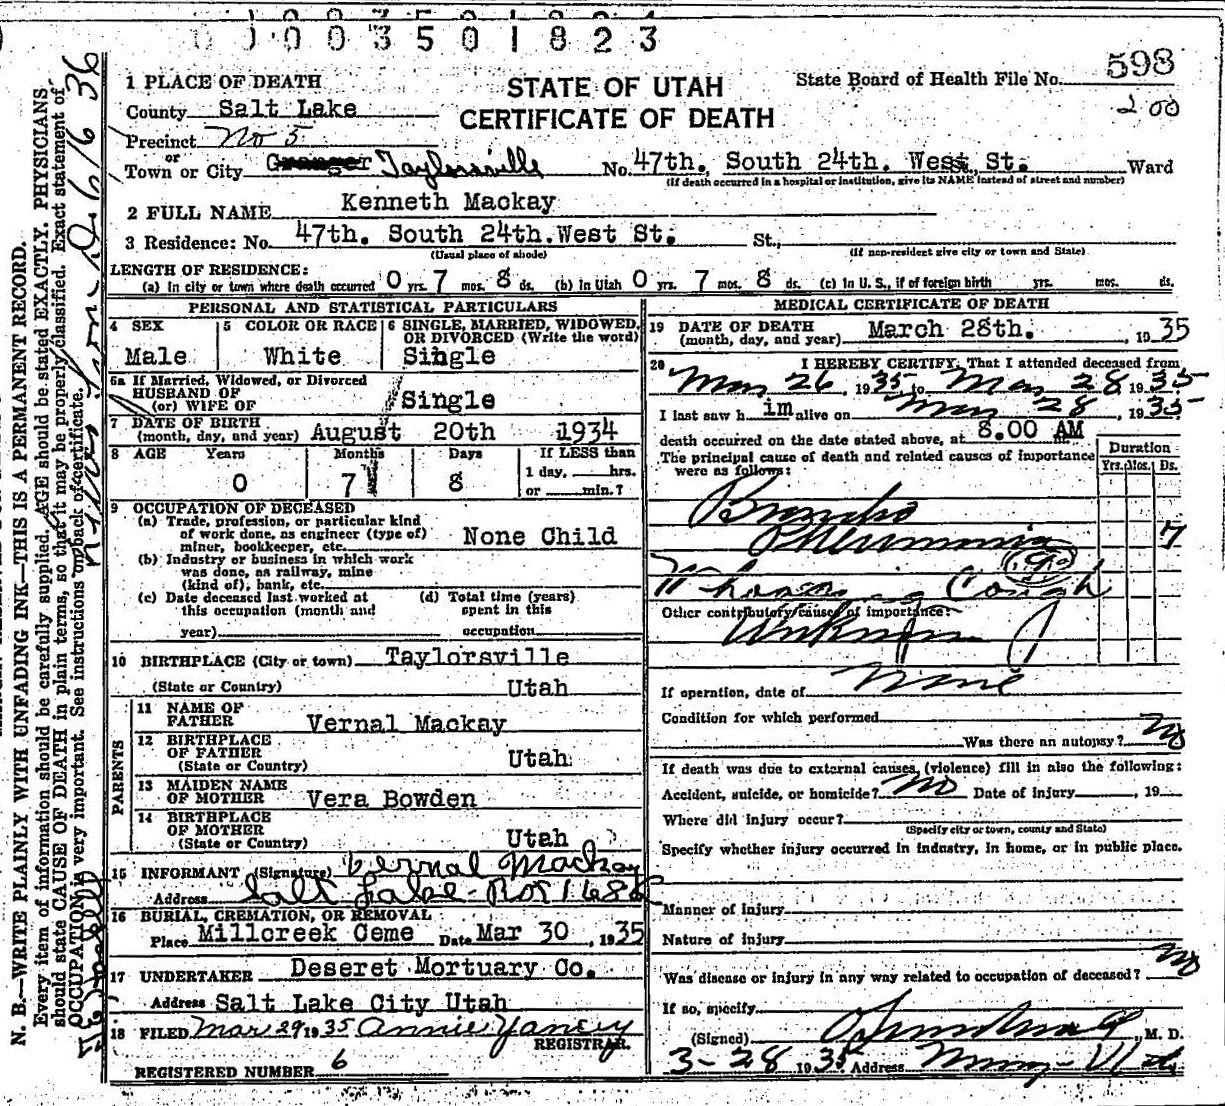 1003501823
STATE OF UTAH
CERTIFICATE OF DEATH
State Board of Health File No. 593
200
1 PLACE OF DEATH
County Salt Lake
Precinct No 5
or
Town or City Granger Taylorsville No. 47th. South 24th. West St. Ward
(If death occurred in a hospital or institution, give its NAME instead of street and number)
2 FULL NAME Kenneth Mackay
3 Residence: No. 47th. South 24th. West St. St.,
(Usual place of abode) (If non-resident give city or town and State)
LENGTH OF RESIDENCE:
(a) In city or town where death occurred 0 yrs. 7 mos. 8 ds. (b) In Utah 0 yrs. 7 mos. 8 ds. (c) In U. S., if of foreign birth yrs. mos. ds.
PERSONAL AND STATISTICAL PARTICULARS
4 SEX
Male
5 COLOR OR RACE
White
6 SINGLE, MARRIED, WIDOWED, OR DIVORCED (Write the word)
Single
6a If Married, Widowed, or Divorced
HUSBAND OF
(or) WIFE OF Single
7 DATE OF BIRTH
(month, day, and year) August 20th 1934
8 AGE Years Months Days If LESS than
1 day, hrs.
0 7 8 or min.?
9 OCCUPATION OF DECEASED
(a) Trade, profession, or particular kind
of work done, as engineer (type of)
miner, bookkeeper, etc. None Child
(b) Industry or business in which work
was done, as railway, mine
(kind of), bank, etc.
(c) Date deceased last worked at
this occupation (month and
year)
(d) Total time (years)
spent in this
occupation
10 BIRTHPLACE (City or town) Taylorsville
(State or Country) Utah
PARENTS
11 NAME OF
FATHER Vernal Mackay
12 BIRTHPLACE
OF FATHER
(State or Country) Utah
13 MAIDEN NAME
OF MOTHER Vera Bowden
14 BIRTHPLACE
OF MOTHER
(State or Country) Utah
15 INFORMANT (Signature) Vernal Mackay
Address Salt Lake - Box 1686
16 BURIAL, CREMATION, OR REMOVAL
Place Millcreek Ceme Date Mar 30, 1935
17 UNDERTAKER Deseret Mortuary Co.
Address Salt Lake City Utah
18 FILED Mar 29 1935 Annie Yancey
REGISTRAR.
REGISTERED NUMBER 6
MEDICAL CERTIFICATE OF DEATH
19 DATE OF DEATH
(month, day, and year) March 28th. , 1935
20 I HEREBY CERTIFY, That I attended deceased from
Mar 26 1935 to Mar 28 1935
I last saw him alive on Mar 28, 1935
death occurred on the date stated above, at 8.00 AM
The principal cause of death and related causes of importance
were as follows:
Duration
Yrs. Mos. Ds.
Broncho
Pneumonia 7
Whooping Cough
Other contributory causes of importance:
Unknown
If operation, date of None
Condition for which performed
Was there an autopsy? No
If death was due to external causes (violence) fill in also the following:
Accident, suicide, or homicide? No Date of injury , 19
Where did injury occur?
(Specify city or town, county and State)
Specify whether injury occurred in industry, in home, or in public place.
Manner of injury
Nature of injury
Was disease or injury in any way related to occupation of deceased? No
If so, specify
(Signed) , M. D.
3-28 1935 Address Utah
N. B.—WRITE PLAINLY WITH UNFADING INK—THIS IS A PERMANENT RECORD.
Every item of information should be carefully supplied. AGE should be stated EXACTLY. PHYSICIANS
should state CAUSE OF DEATH in plain terms, so that it may be properly classified. Exact statement of
OCCUPATION is very important. See instructions on back of certificate.